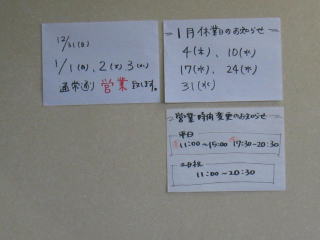 12/31(日)
1/1(月)、2(火)3(水)
通常通り営業致します。
1月休業日のお知らせ
4(木)、10(水)
17(水)、24(水)
31(水)
営業時間変更のお知らせ
平日
11:00〜15:00 17:30-20:30
土日祝
11:00〜20:30